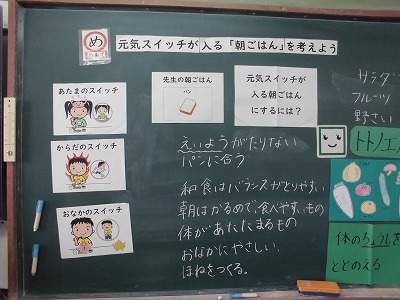 め
元気スイッチが入る「朝ごはん」を考えよう
あたまのスイッチ
からだのスイッチ
おなかのスイッチ
先生の朝ごはん
パン
元気スイッチが
入る朝ごはん
にするには?
えいようがたりない
パンに合う
和食はバランスがとりやすい
朝はかるめで、食べやすいもの
体があたたまるもの
おなかにやさしい。
ほねをつくる。
サラダ
フルーツ
野さい
体のちょうしを
ととのえる